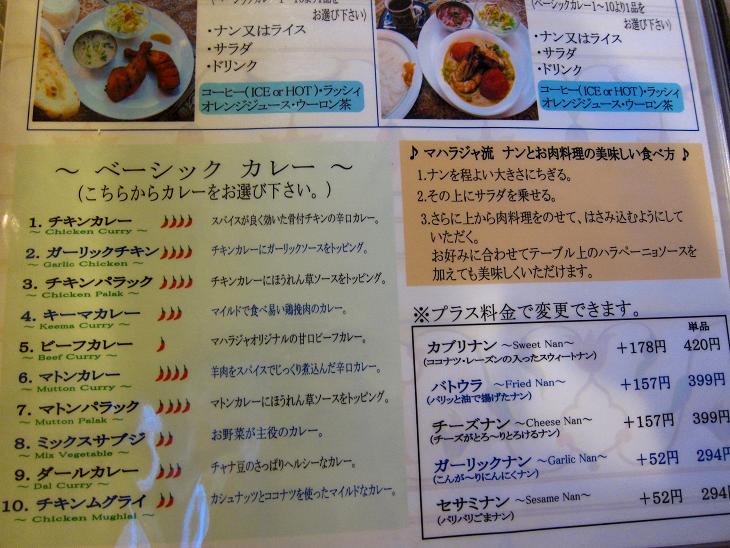 お選び下さい)
・ナン又はライス
・サラダ
・ドリンク
コーヒー(ICE or HOT)・ラッシィ
オレンジジュース・ウーロン茶
(ベーシックカレー1~10より1品を
お選び下さい)
・ナン又はライス
・サラダ
・ドリンク
コーヒー(ICE or HOT)・ラッシィ
オレンジジュース・ウーロン茶
～ ベーシック カレー ～
(こちらからカレーをお選び下さい。)
1. チキンカレー スパイスが良く効いた骨付チキンの辛口カレー。
～ Chicken Curry ～
2. ガーリックチキン チキンカレーにガーリックソースをトッピング。
～ Garlic Chicken ～
3. チキンパラック チキンカレーにほうれん草ソースをトッピング。
～ Chicken Palak ～
4. キーマカレー マイルドで食べ易い鶏挽肉のカレー。
～ Keema Curry ～
5. ビーフカレー マハラジャオリジナルの甘口ビーフカレー。
～ Beef Curry ～
6. マトンカレー 羊肉をスパイスでじっくり煮込んだ辛口カレー。
～ Mutton Curry ～
7. マトンパラック マトンカレーにほうれん草ソースをトッピング。
～ Mutton Palak ～
8. ミックスサブジ お野菜が主役のカレー。
～ Mix Vegetable ～
9. ダールカレー チャナ豆のさっぱりヘルシーなカレー。
～ Dal Curry ～
10. チキンムグライ カシュナッツとココナツを使ったマイルドなカレー。
～ Chicken Mughlai ～
♪ マハラジャ流 ナンとお肉料理の美味しい食べ方 ♪
1.ナンを程よい大きさにちぎる。
2.その上にサラダを乗せる。
3.さらに上から肉料理をのせて、はさみ込むようにして
いただく。
お好みに合わせてテーブル上のハラペーニョソースを
加えても美味しくいただけます。
※プラス料金で変更できます。
単品
カブリナン ～Sweet Nan～ +178円 420円
(ココナツ・レーズンの入ったスウィートナン)
バトウラ ～Fried Nan～ +157円 399円
(パリッと油で揚げたナン)
チーズナン ～Cheese Nan～ +157円 399円
(チーズがとろ～りとろけるナン)
ガーリックナン ～Garlic Nan～ +52円 294円
(こんが～りにんにくナン)
セサミナン ～Sesame Nan～ +52円 294円
(パリパリごまナン)